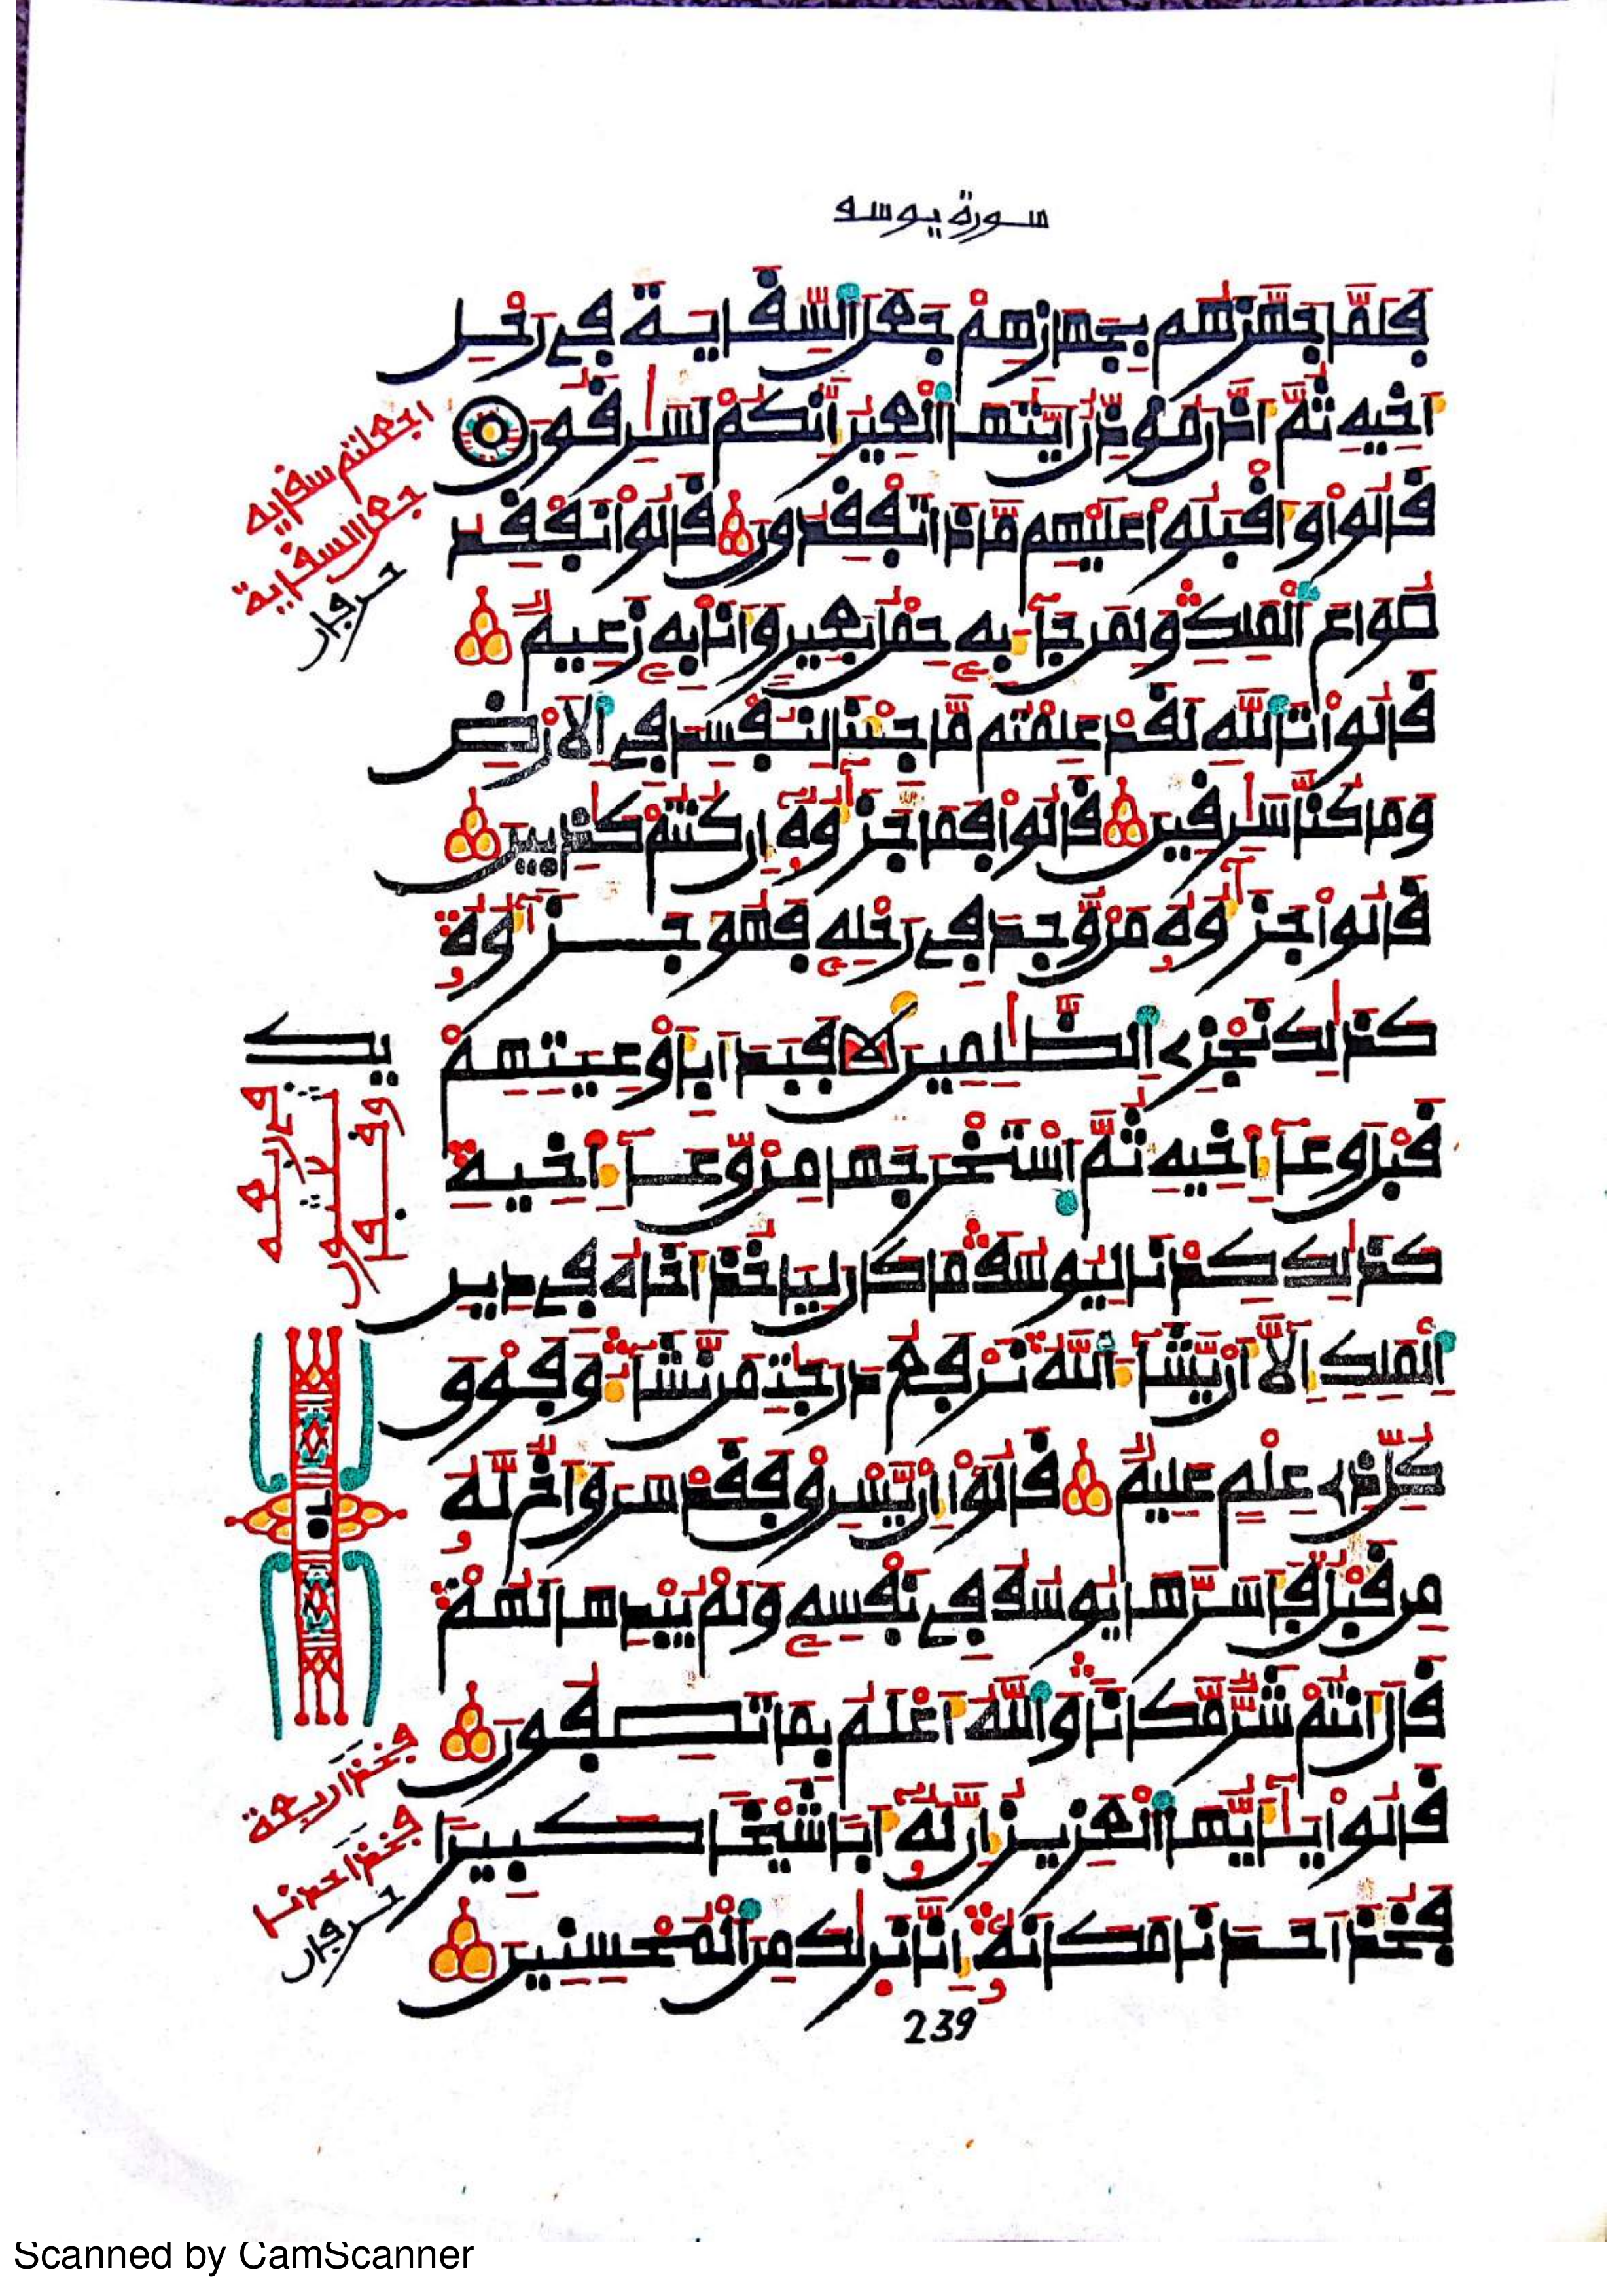 سورة يوسف
فَلَمَّا جَهَّزَهُم بِجَهَازِهِمْ جَعَلَ ٱلسِّقَايَةَ فِے رَحْلِ
أَخِيهِ ثُمَّ أَذَّنَ مُوَذِّنٌ أَيَّتُهَا ٱلْعِيرُ إِنَّكُمْ لَسَٰرِقُونَ
قَالُواْ وَأَقْبَلُواْ عَلَيْهِم مَّاذَا تَفْقِدُونَ قَالُواْ نَفْقِدُ
صُوَاعَ ٱلْمَلِكِ وَلِمَن جَآءَ بِهِۦ حِمْلُ بَعِيرٍ وَأَنَا بِهِۦ زَعِيمٌ
قَالُواْ تَٱللَّهِ لَقَدْ عَلِمْتُم مَّا جِئْنَا لِنُفْسِدَ فِے ٱلْأَرْضِ
وَمَا كُنَّا سَٰرِقِينَ قَالُواْ فَمَا جَزَٰٓؤُهُۥٓ إِن كُنتُمْ كَٰذِبِينَ
قَالُواْ جَزَٰٓؤُهُۥ مَنْ وُّجِدَ فِے رَحْلِهِۦ فَهُوَ جَزَٰٓؤُهُۥ
كَذَٰلِكَ نَجْزِے ٱلظَّٰلِمِينَ فَبَدَأَ بِأَوْعِيَتِهِمْ
قَبْلَ وِعَآءِ اَخِيهِ ثُمَّ ٱسْتَخْرَجَهَا مِنْ وِّعَآءِ اَخِيهِ
كَذَٰلِكَ كِدْنَا لِيُوسُفَ مَا كَانَ لِيَاخُذَ أَخَاهُ فِے دِينِ
ٱلْمَلِكِ إِلَّآ أَنْ يَّشَآءَ ٱللَّهُ نَرْفَعُ دَرَجَٰتِ مَن نَّشَآءُ وَفَوْقَ
كُلِّ ذِے عِلْمٍ عَلِيمٌ قَالُوٓاْ إِنْ يَّسْرِقْ فَقَدْ سَرَقَ أَخٌ لَّهُۥ
مِن قَبْلُ فَأَسَرَّهَا يُوسُفُ فِے نَفْسِهِۦ وَلَمْ يُبْدِهَا لَهُمْ
قَالَ أَنتُمْ شَرٌّ مَّكَانًا وَٱللَّهُ أَعْلَمُ بِمَا تَصِفُونَ
قَالُواْ يَٰٓأَيُّهَا ٱلْعَزِيزُ إِنَّ لَهُۥٓ أَبًا شَيْخًا كَبِيرًا
فَخُذْ أَحَدَنَا مَكَانَهُۥٓ إِنَّا نَر۪ىٰكَ مِنَ ٱلْمُحْسِنِينَ
239
اجعلتم سقاية
جعل السقاية
حرفان
فخذ اربعة
فخذ احدنا
حرفان
Scanned by CamScanner